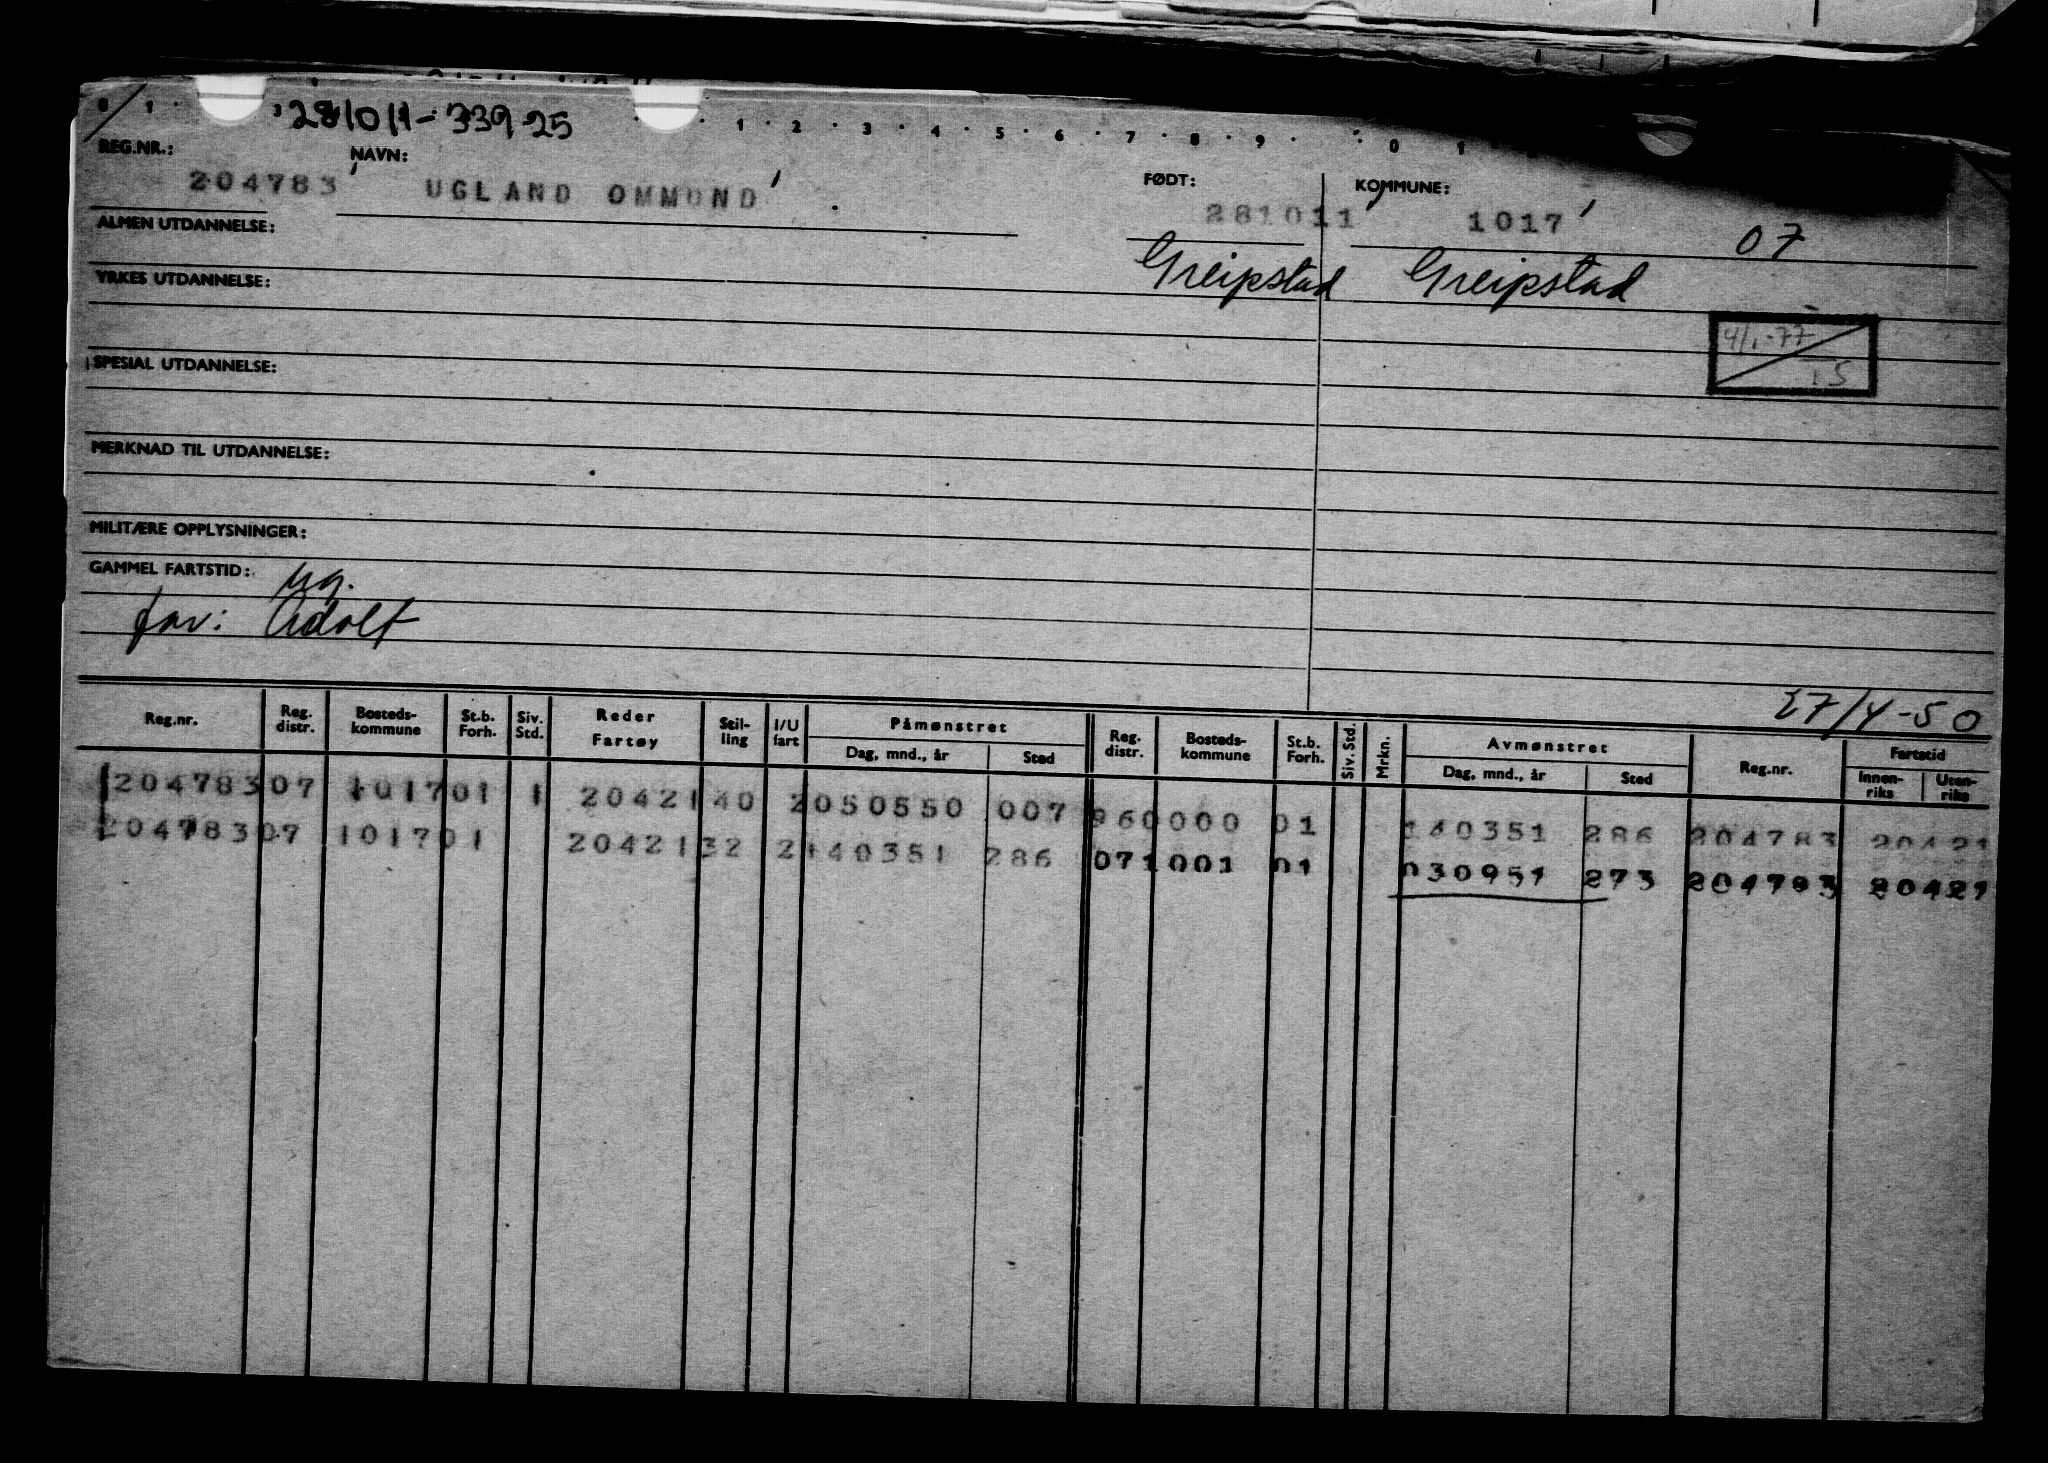 0 1 . 3 281011-339 25 . . 1 . 2 . 3 . 4 . 5 . 6 . 7 . 8 . 9 . . 0 1
REG.NR.: NAVN: FØDT: KOMMUNE:
204783 UGLAND OMMUND 281011 1017 07
ALMEN UTDANNELSE:
Greipstad Greipstad
YRKES UTDANNELSE:
4/1-77
SPESIAL UTDANNELSE:
MERKNAD TIL UTDANNELSE:
MILITÆRE OPPLYSNINGER:
GAMMEL FARTSTID: ug.
far: Adolf
27/4-50
Reg.nr. Reg. distr. Bosteds-kommune St.b. Forh. Siv. Std. Reder Fartøy Stil-ling I/U fart Påmønstret Dag, mnd., år Sted Reg. distr. Bosteds-kommune St.b. Forh. Siv. Std. Mrkn. Avmønstret Dag, mnd., år Sted Reg.nr. Fartstid Innen-riks Uten-riks
204783 07 1017 01 1 20421 40 2 050550 007 960000 01 140351 286 204783 20421
204783 07 1017 01 20421 32 2 140351 286 071001 01 030951 273 204783 20421